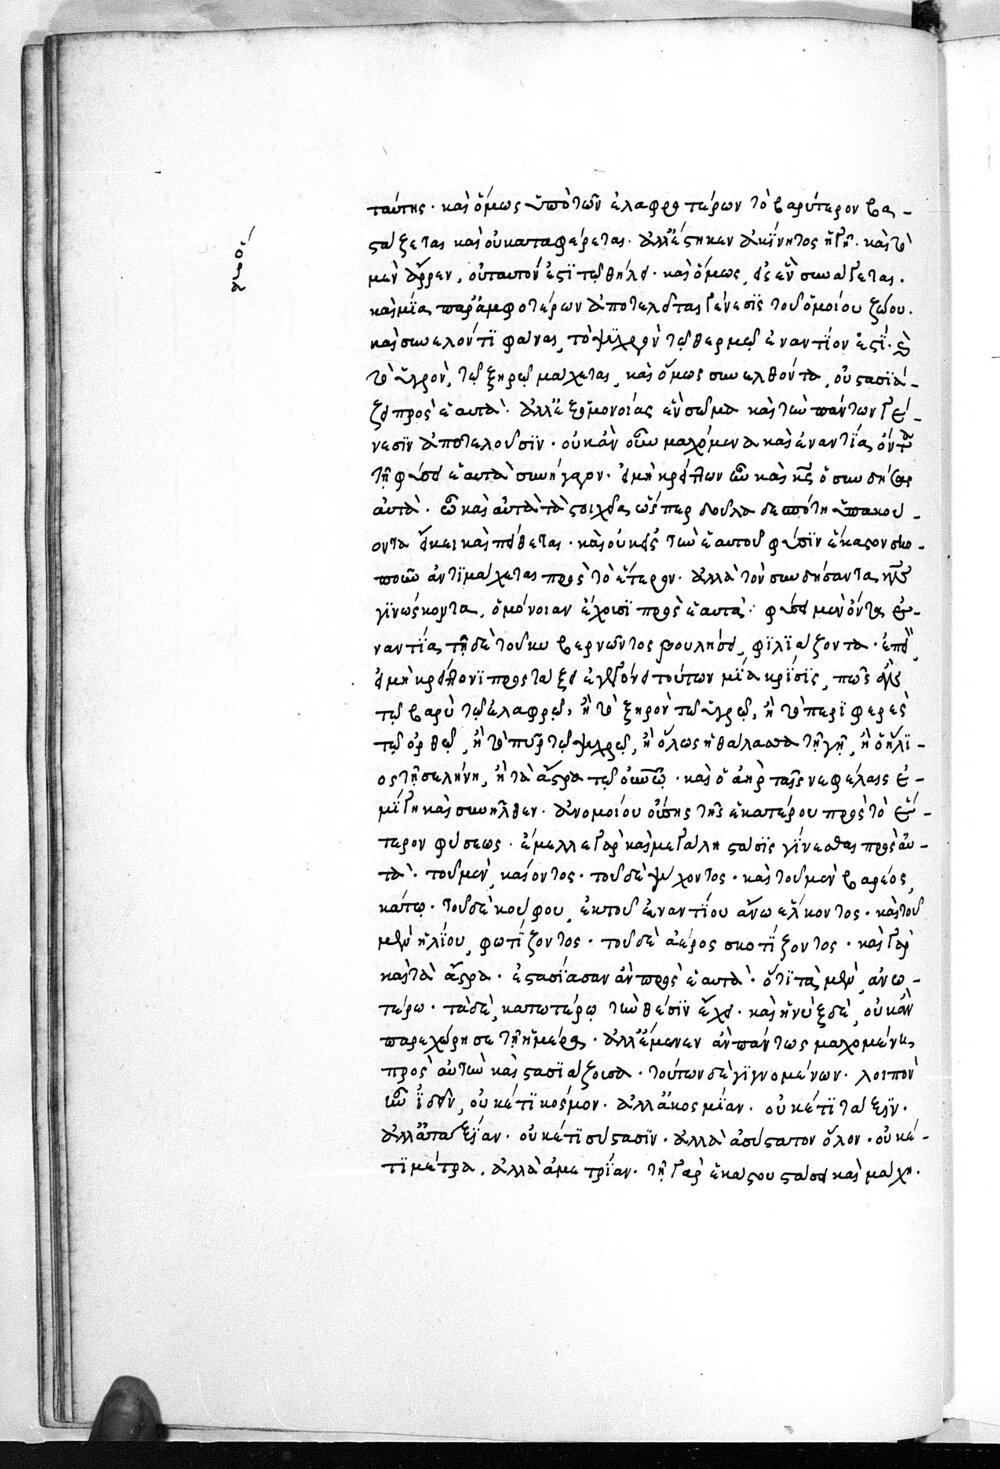 ταύτης· καὶ ὅμως ὑπὸ τῶν ἐλαφροτέρων τὸ βαρύτερον βα-
στάζεται καὶ οὐ καταφέρεται· ἀλλ' ἕστηκεν ἀκίνητος ἡ γῆ· καὶ τὸ
μὲν ἄρρεν, οὐ ταυτόν ἐστι τῷ θήλει· καὶ ὅμως, εἰς ἓν συνάγεται.
καὶ μία παρ' ἀμφοτέρων ἀποτελεῖται γένεσις τοῦ ὁμοίου ζώου.
καὶ συνελόντι φάναι, τὸ ψυχρὸν τῷ θερμῷ ἐναντίον ἐστί· καὶ
τὸ ὑγρὸν, τῷ ξηρῷ μάχεται, καὶ ὅμως συνελθόντα, οὐ στασιά-
ζει πρὸς ἑαυτά· ἀλλ' ἐξ ὁμονοίας ἓν σῶμα καὶ τὴν πάντων γέ-
νεσιν ἀποτελοῦσιν· οὐκ ἂν οὖν μαχόμενα καὶ ἐναντία ὄντα
τῇ φύσει ἑαυτὰ συνήγαγον· εἰ μὴ κρείττων ἦν καὶ κς ὁ συνδήσας
αὐτά· ᾧ καὶ αὐτὰ τὰ στοιχεῖα, ὥσπερ δοῦλα δεσπότῃ ὑπακού-
οντα εἴκει καὶ πείθεται· καὶ οὐκ εἰς τὴν ἑαυτοῦ φύσιν ἕκαστον σκο-
ποῦν ἀντιμάχεται πρὸς τὸ ἕτερον· ἀλλὰ τὸν συνδήσαντα κν
γινώσκοντα, ὁμόνοιαν ἔχουσι πρὸς ἑαυτά· φύσει μὲν ὄντα ἐ-
ναντία, τῇ δὲ τοῦ κυβερνῶντος βουλήσει, φιλιάζοντα· ἐπεὶ,
εἰ μὴ κρείττονι προστάξει ἐγεγόνει τούτων μία κρίσις, πῶς ἂν
τῷ βαρὺ τῷ ἐλαφρῷ, ἢ τὸ ξηρὸν τῷ ὑγρῷ, ἢ τὸ περιφερὲς
τῷ ὀρθῷ, ἢ τὸ πῦρ τῷ ψυχρῷ, ἢ ὅλως ἡ θάλασσα τῇ γῇ, ἢ ὁ ἥλι-
ος τῇ σελήνῃ, ἢ τὰ ἄστρα τῷ οὐνῷ· καὶ ὁ ἀὴρ ταῖς νεφέλαις ἐ-
μίγη καὶ συνῆλθεν· ἀνομοίου οὔσης τῆς ἑκατέρου πρὸς τὸ ἕ-
τερον φύσεως· ἔμελλε γὰρ καὶ μεγάλη στάσις γίνεσθαι πρὸς αὐ-
τά· τοῦ μὲν, καίοντος· τοῦ δὲ ψύχοντος· καὶ τοῦ μὲν βαρέος,
κάτω· τοῦ δὲ κούφου, ἐκ τοῦ ἐναντίου ἄνω ἕλκοντος· καὶ τοῦ
μὲν ἡλίου, φωτίζοντος· τοῦ δὲ ἀέρος σκοτίζοντος· καὶ γὰρ
καὶ τὰ ἄστρα· ἐστασίασαν ἂν πρὸς ἑαυτά· ὅτι τὰ μὲν, ἀνω-
τέρω· τὰ δὲ, κατωτέρω τὴν θέσιν ἔχει· καὶ ἡ νὺξ δὲ, οὐκ ἂν
παρεχώρησε τῇ ἡμέρᾳ· ἀλλ' ἔμενεν ἂν πάντως μαχομένη
πρὸς αὐτὴν καὶ στασιάζουσα· τούτων δὲ γιγνομένων· λοιπὸν
ἦν ἰδεῖν, οὐκέτι κόσμον· ἀλλ' ἀκοσμίαν· οὐκέτι τάξιν·
ἀλλ' ἀταξίαν· οὐκέτι σύστασιν· ἀλλὰ ἀσύστατον ὅλον· οὐκέ-
τι μέτρα, ἀλλὰ ἀμετρίαν· τῇ γὰρ ἑκάστου στάσει καὶ μάχῃ.